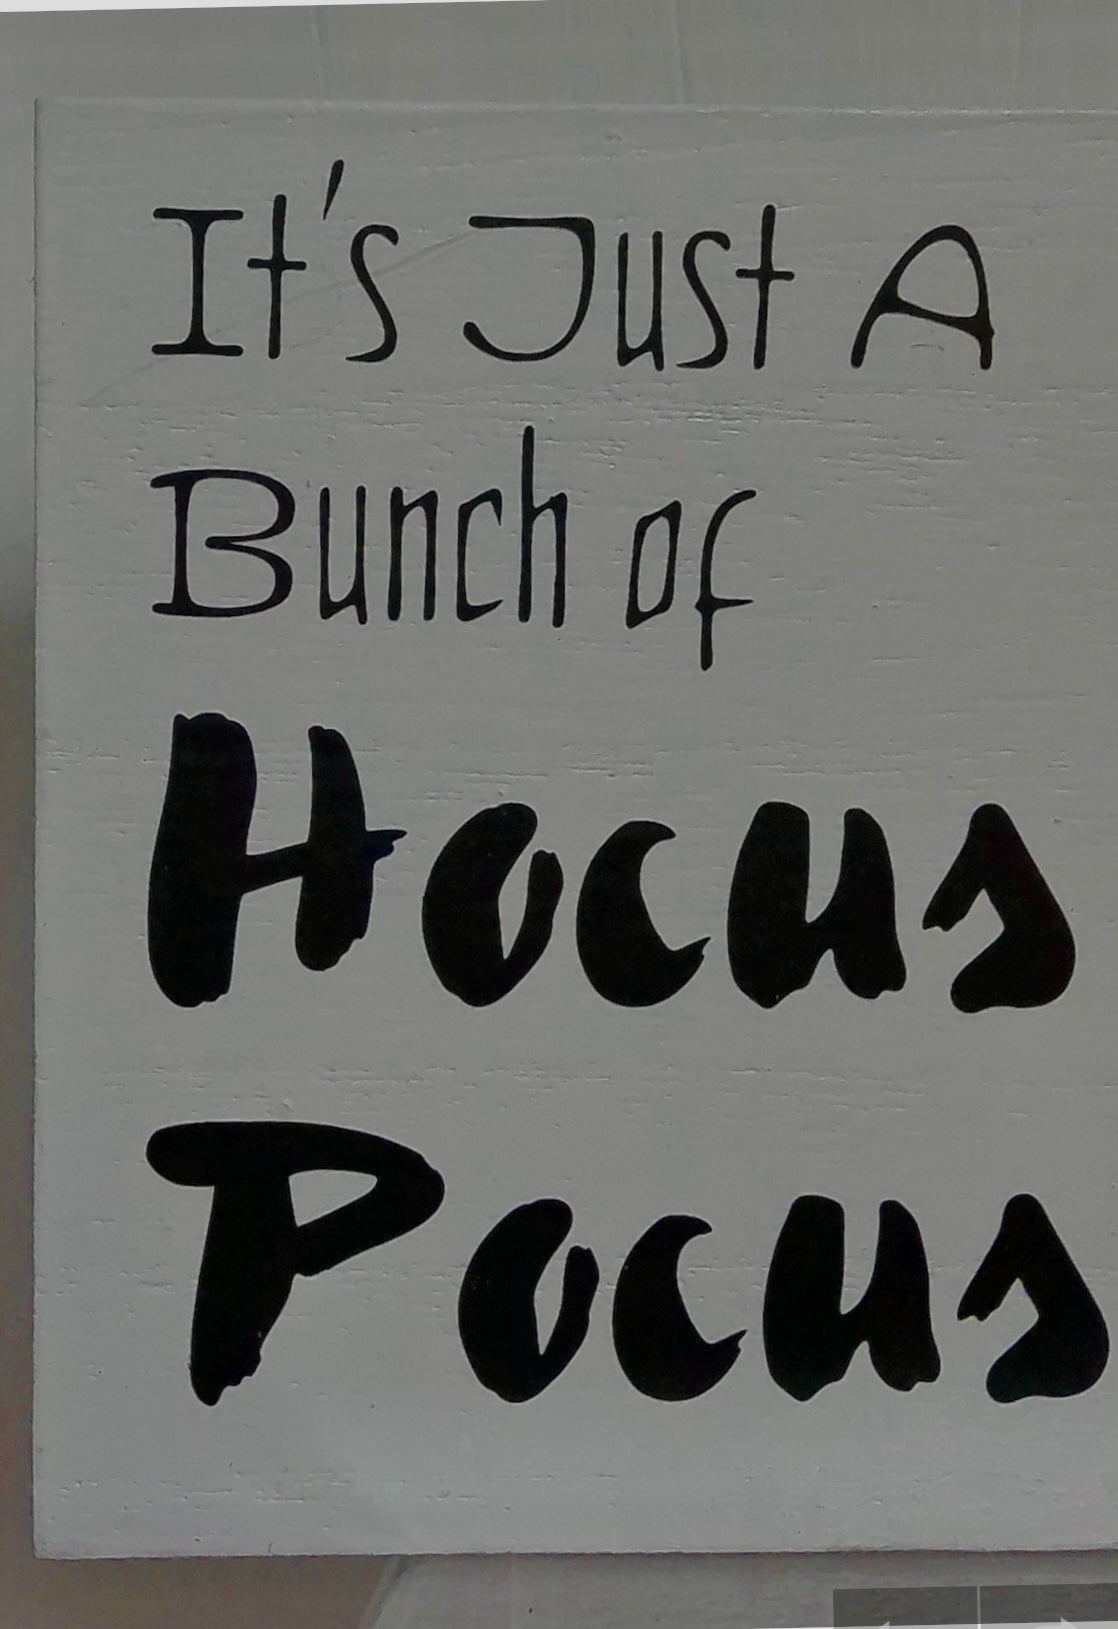 It's Just A
Bunch of
Hocus
Pocus